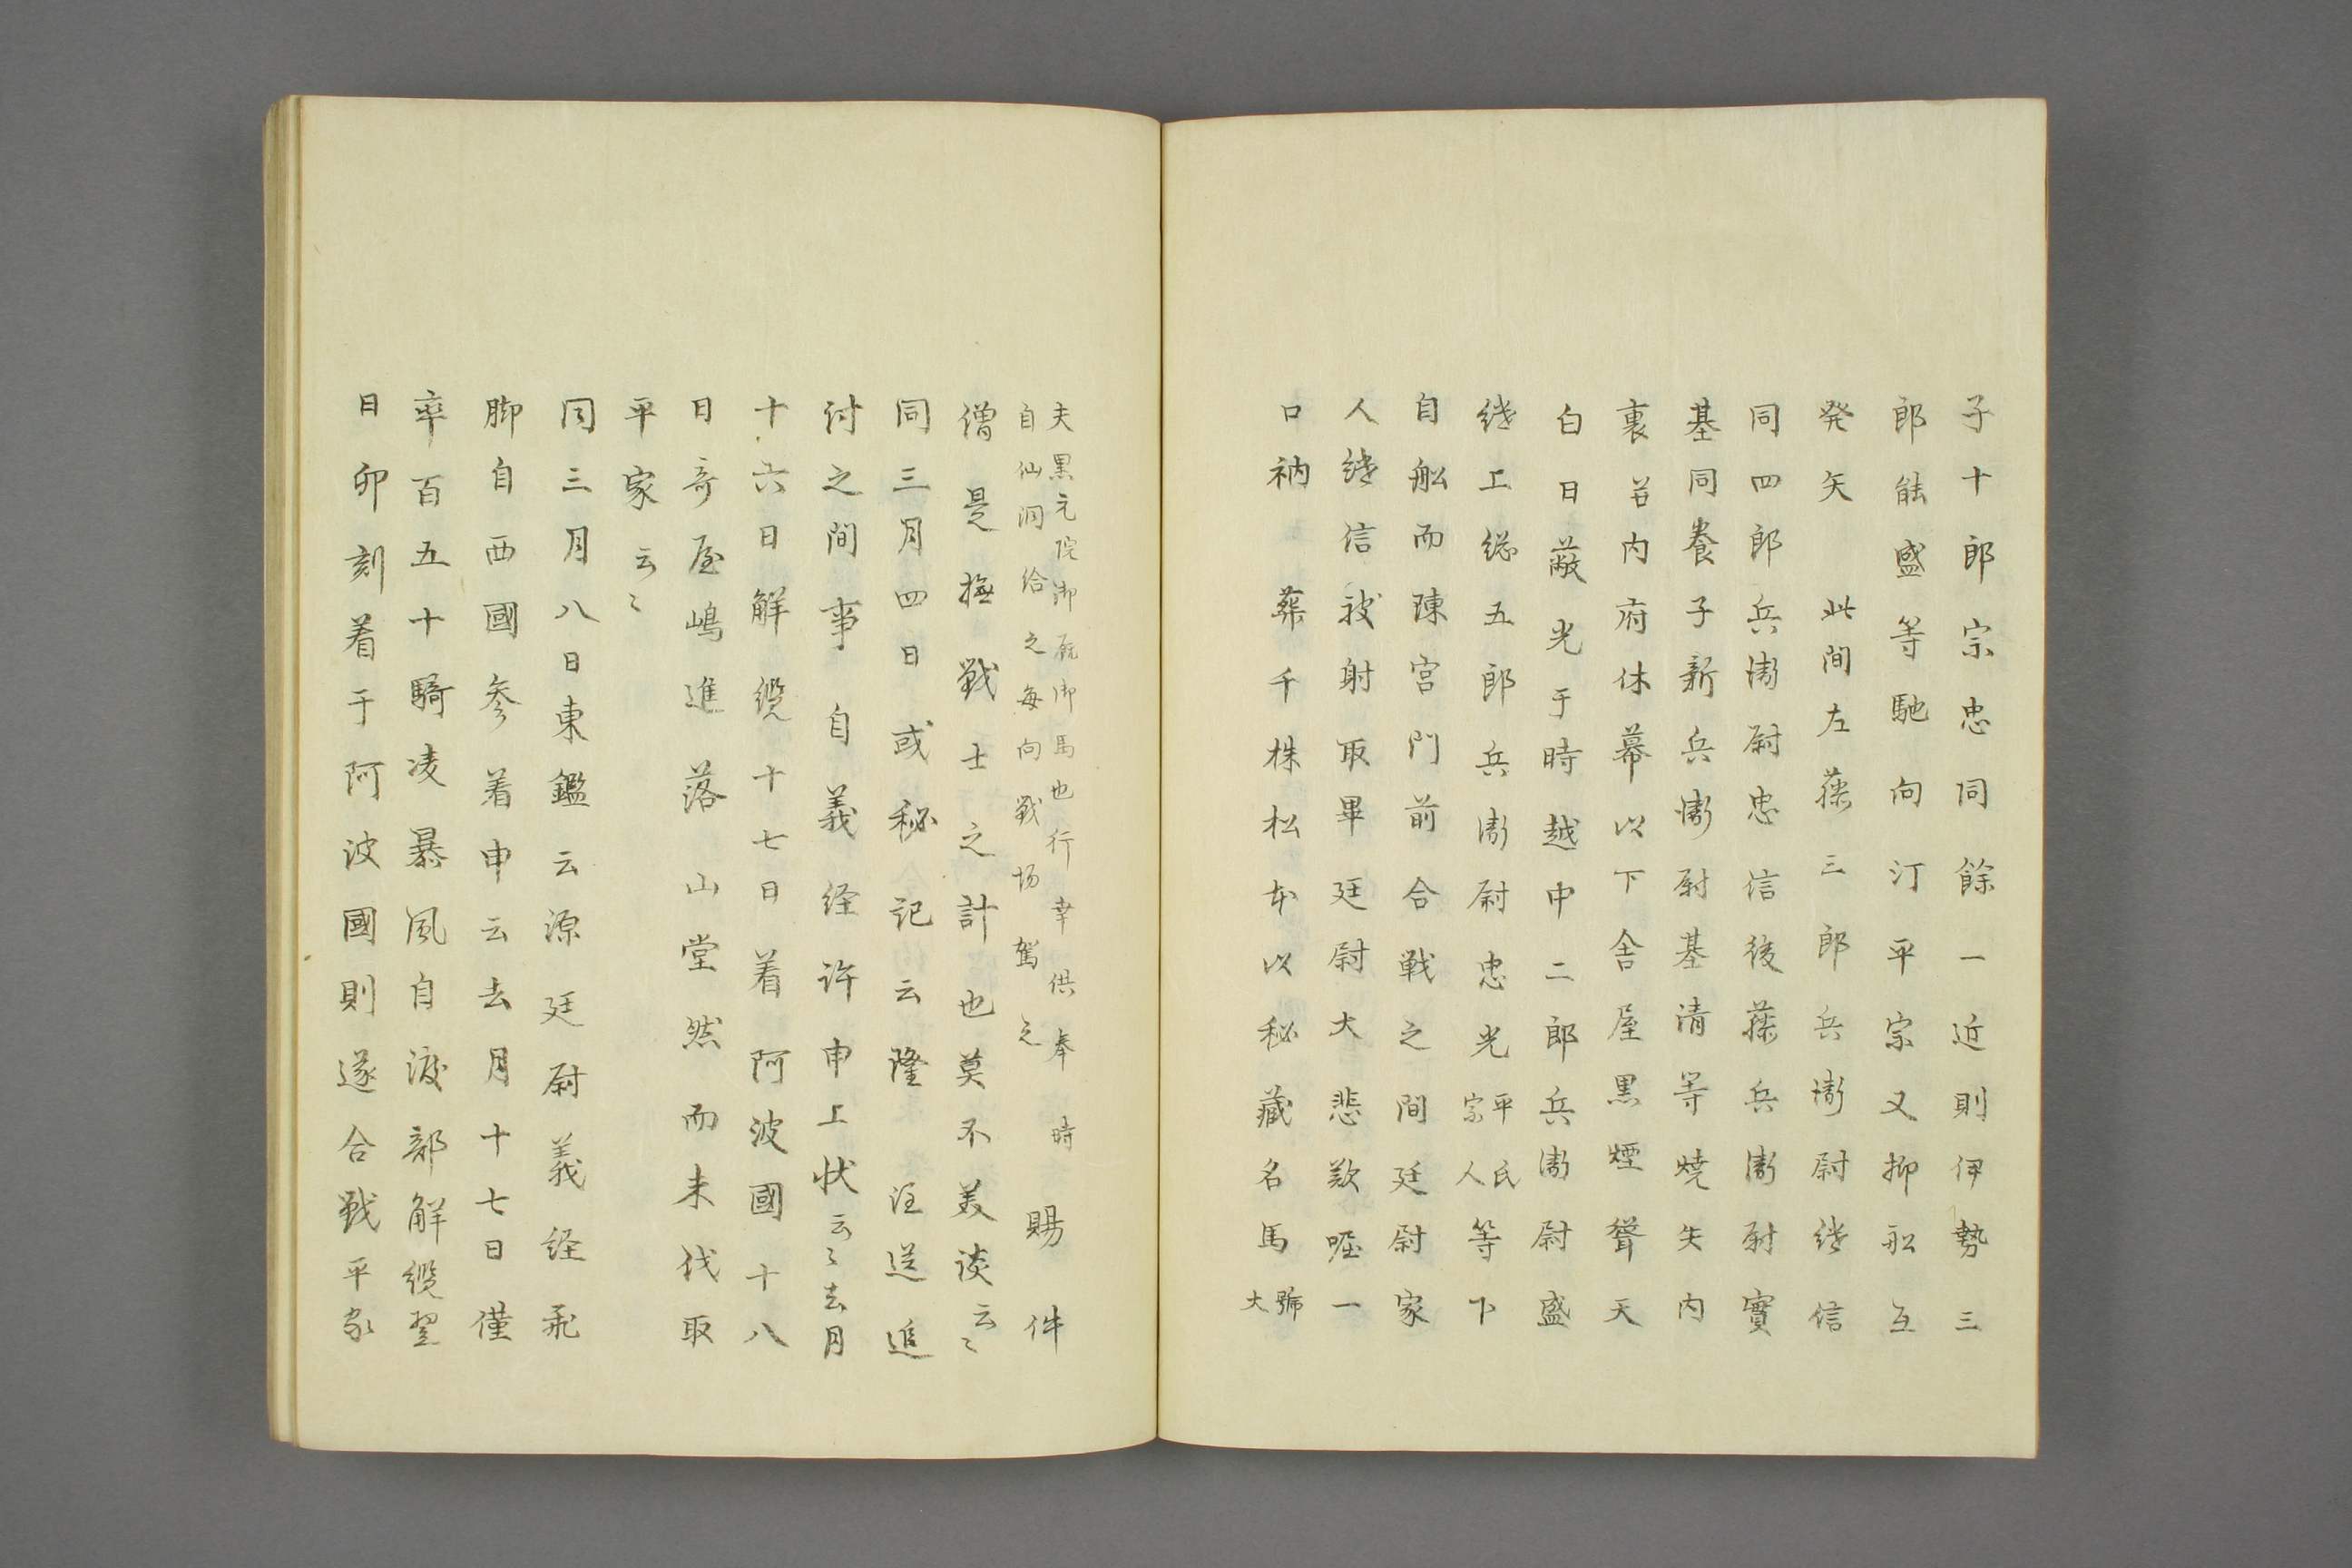 子十郎宗忠同餘一近則伊勢三
郎能盛等馳向汀平宗又抑舩互
発矢　此間左藤三郎兵衛尉継信
同四郎兵衛尉忠信後藤兵衛尉實
基同養子新兵衛尉基清等焼失内
裏并内府休幕以下舎屋黒煙聳天
白日蔽光于時越中二郎兵衛尉盛
継上総五郎兵衛尉忠光平氏
宗人等下
自舩而陳宮門前合戦之間廷尉家
人継信被射取畢廷尉大悲歎喔一
口衲　葬千株松本以秘藏名馬號
大
夫黒元院御厩御馬也行幸供奉時
自仙洞給之毎向戦场駕之
賜件
僧是撫戦士之計也莫不美談云〻
同三月四日　或秘記云隆　注送追
討之間事　自義経許申上状云〻去月
十六日解纜十七日着阿波國十八
日奇屋嶋進落　山堂然而未伐取
平家云〻
同三月八日東鑑云源廷尉義経飛
脚自西國参着申云去月十七日僅
率百五十騎凌暴風自渡部解纜翌
日卯刻着于阿波國則遂合戦平家